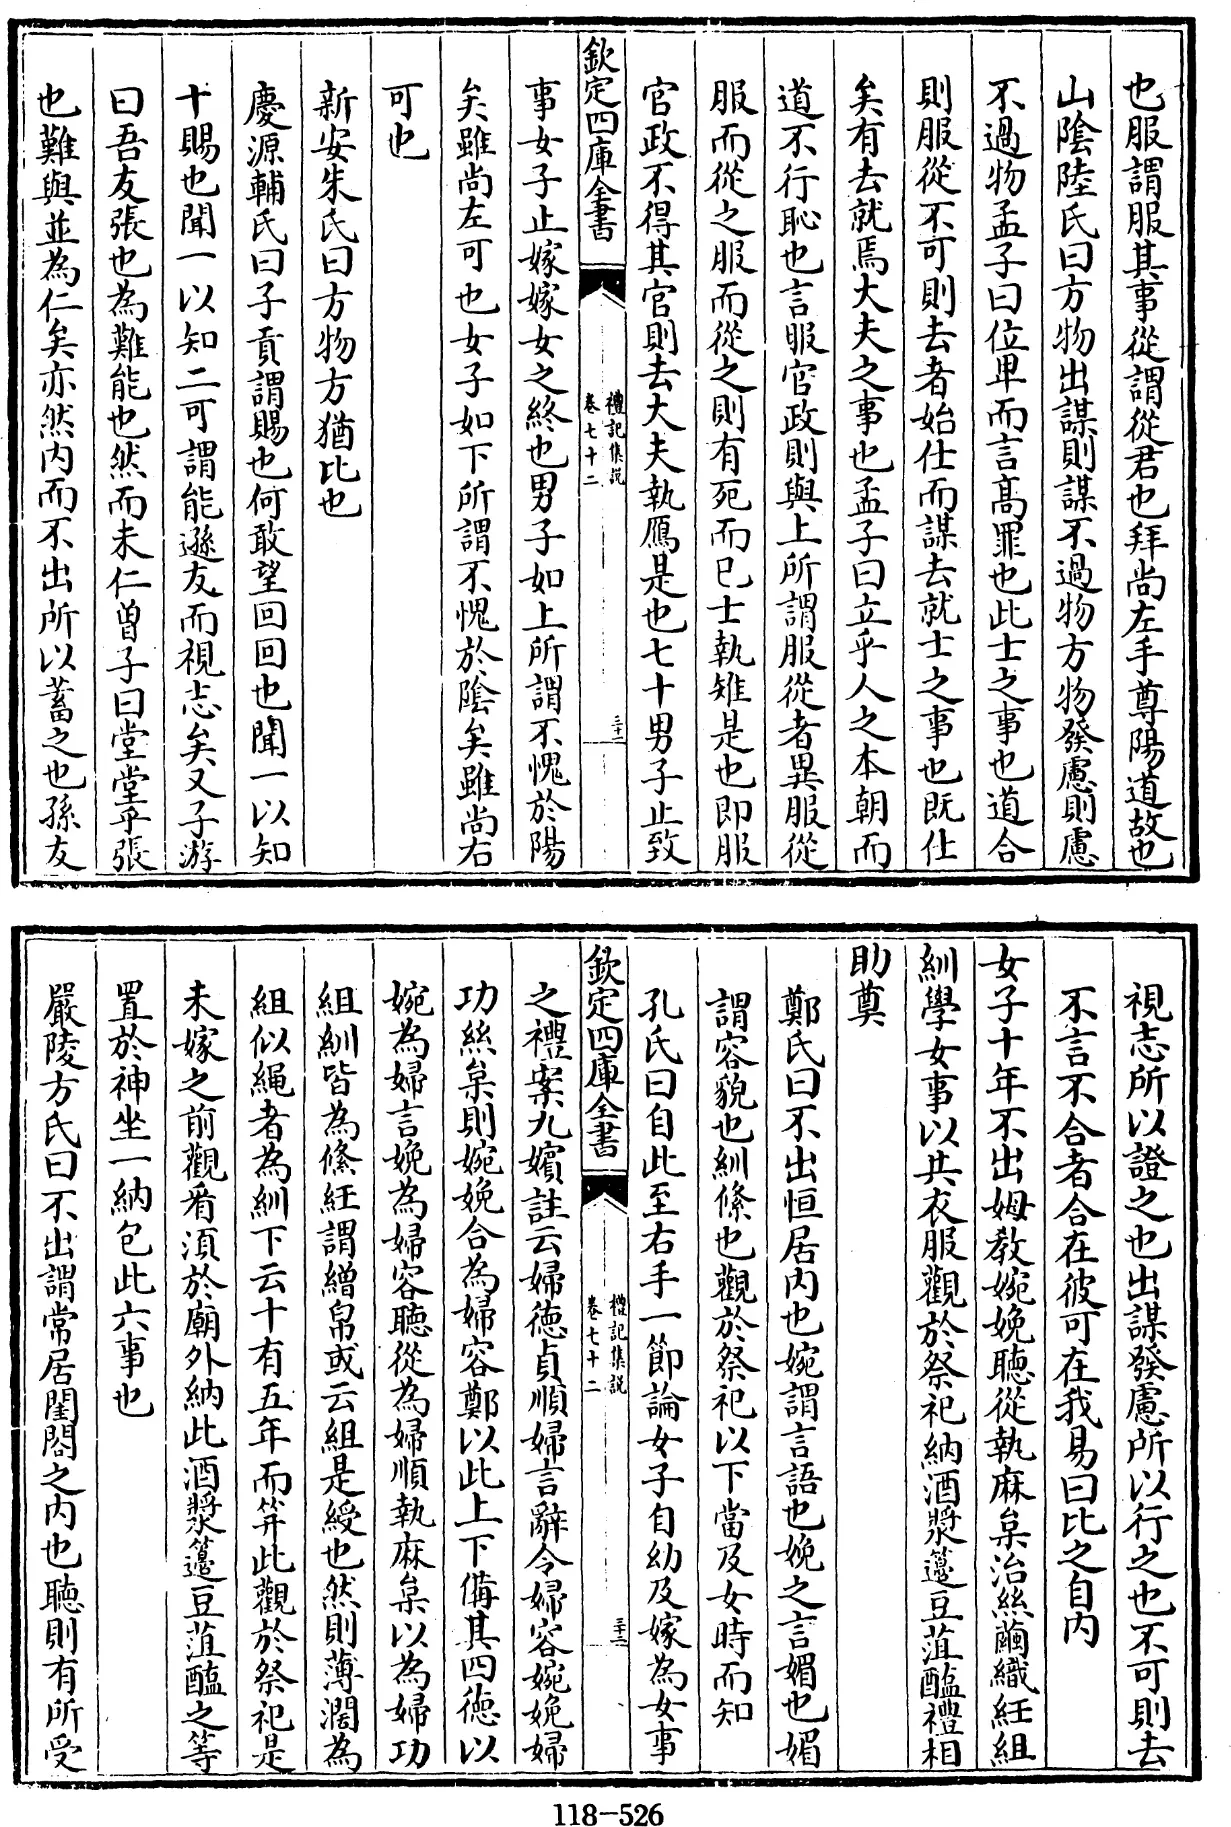 也服謂服其事從謂從君也拜尚左手尊陽道故也
山陰陸氏曰方物出謀則謀不過物方物發慮則慮
不過物孟子曰位卑而言髙罪也此士之事也道合
則服從不可則去者始仕而謀去就士之事也既仕
矣有去就焉大夫之事也孟子曰立乎人之本朝而
道不行恥也言服官政則與上所謂服從者異服從
服而從之服而從之則有死而已士執雉是也即服
官政不得其官則去大夫執鴈是也七十男子止致
欽定四庫全書
禮記集説
卷七十二
三十二
事女子止嫁嫁女之終也男子如上所謂不愧於陽
矣雖尚左可也女子如下所謂不愧於陰矣雖尚右
可也
新安朱氏曰方物方猶比也
慶源輔氏曰子貢謂賜也何敢望回回也聞一以知
十賜也聞一以知二可謂能遜友而視志矣又子游
曰吾友張也為難能也然而未仁曾子曰堂堂乎張
也難與並為仁矣亦然内而不出所以蓄之也孫友
視志所以證之也出謀發慮所以行之也不可則去
不言不合者合在彼可在我易曰比之自内
女子十年不出姆教婉娩聽從執麻枲治絲繭織紝組
紃學女事以共衣服觀於祭祀納酒漿籩豆菹醢禮相
助奠
鄭氏曰不出恒居内也婉謂言語也娩之言媚也媚
謂容貌也紃絛也觀於祭祀以下當及女時而知
孔氏曰自此至右手一節論女子自幼及嫁為女事
欽定四庫全書
禮記集説
卷七十二
三十三
之禮案九嬪註云婦徳貞順婦言辭令婦容婉娩婦
功絲枲則婉娩合為婦容鄭以此上下備其四徳以
婉為婦言娩為婦容聽從為婦順執麻枲以為婦功
組紃皆為絛紝謂繒帛或云組是綬也然則薄濶為
組似䋲者為紃下云十有五年而笄此觀於祭祀是
未嫁之前觀看須於廟外納此酒漿籩豆菹醢之等
置於神坐一納包此六事也
嚴陵方氏曰不出謂常居閨閤之内也聽則有所受
118-526